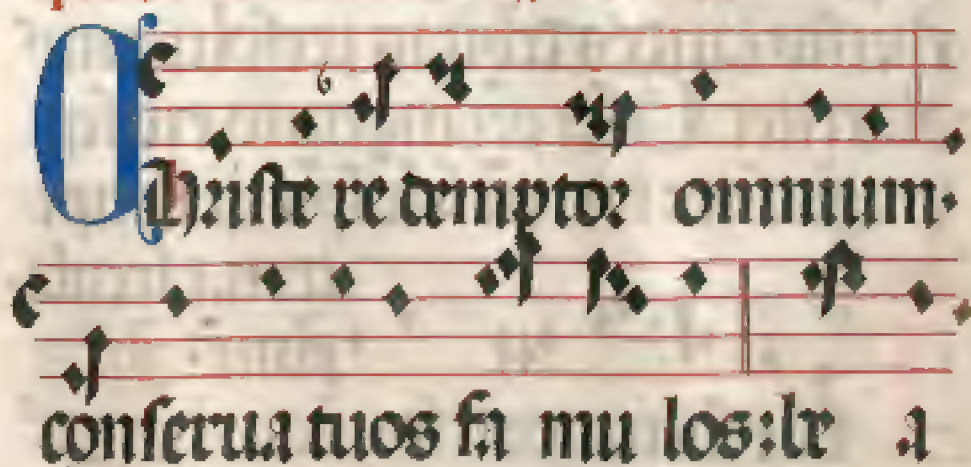 Christe redemptor omnium.
conserua tuos famulos: be a